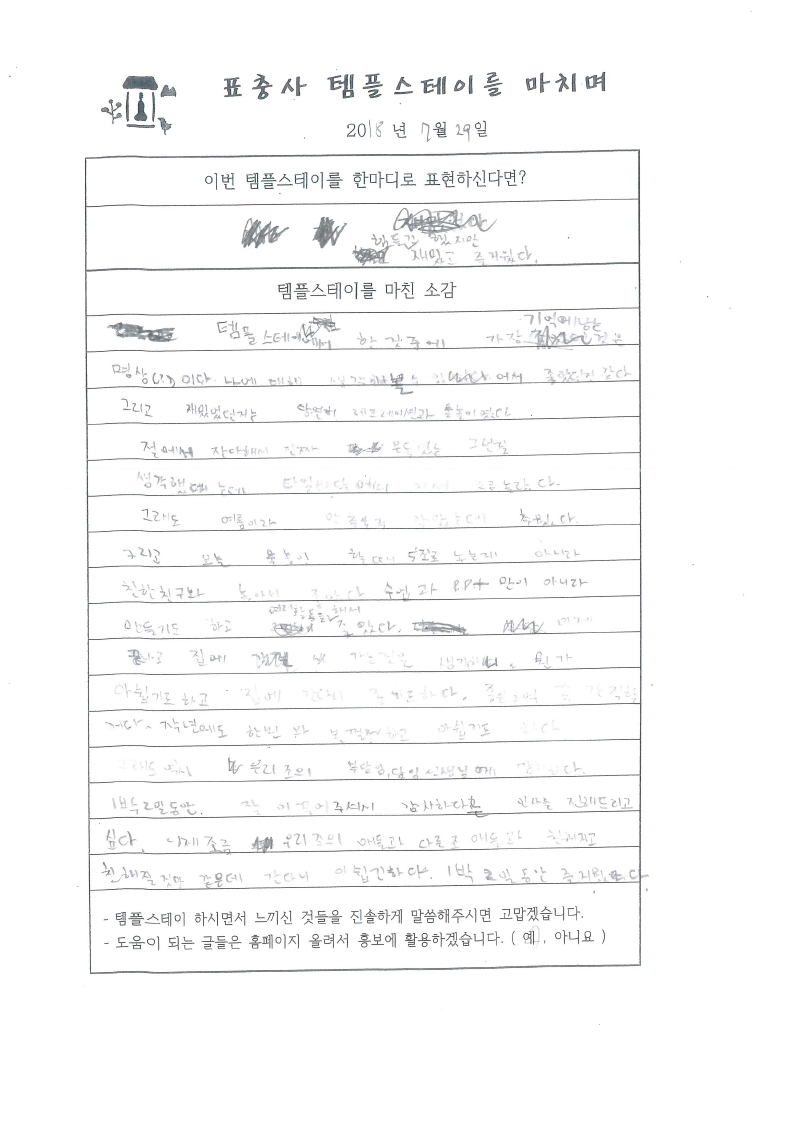 표충사 템플스테이를 마치며
2018년 7월 29일
이번 템플스테이를 한마디로 표현하신다면?
힘들긴 했지만
재밌고 즐거웠다.
템플스테이를 마친 소감
템플스테이 한 것중에 가장 기억에남는 것은
명상(?)이다. 나에 대해 생각해볼 수 있 어서 좋았던거 같다
그리고 재밌었던거는 당연히 레크레이션과 물놀이였다.
절에서 잔다해서 진짜 그런걸
생각했 는데 조금 놀랐다.
그래도 여름이라 추웠다.
그리고 오늘 물놀이 할때 5조로 노는게 아니라
친한친구와 놀아서 좋았다 수업과 PPt만이 아니라
만들기도 하고 여러활동을 해서 재밌었다.
집에 가는것을 생각하니 뭔가
아쉽기도 하고 집에 간다니 좋기도하다.
작년에도 한번 와 아쉽기도 하다
그래도 역시 우리조의 부담임,담임선생님께 감사하다.
1박2일동안. 잘 이끌어주셔서 감사하다는 인사를 전해드리고
싶다. 이제 조금 우리조의 애들과 다른조 애들과 친해지고
친해질것만 같은데 간다니 아쉽긴하다. 1박 2일동안 즐거웠다.
- 템플스테이 하시면서 느끼신 것들을 진솔하게 말씀해주시면 고맙겠습니다.
- 도움이 되는 글들은 홈페이지 올려서 홍보에 활용하겠습니다. ( 예 , 아니요 )